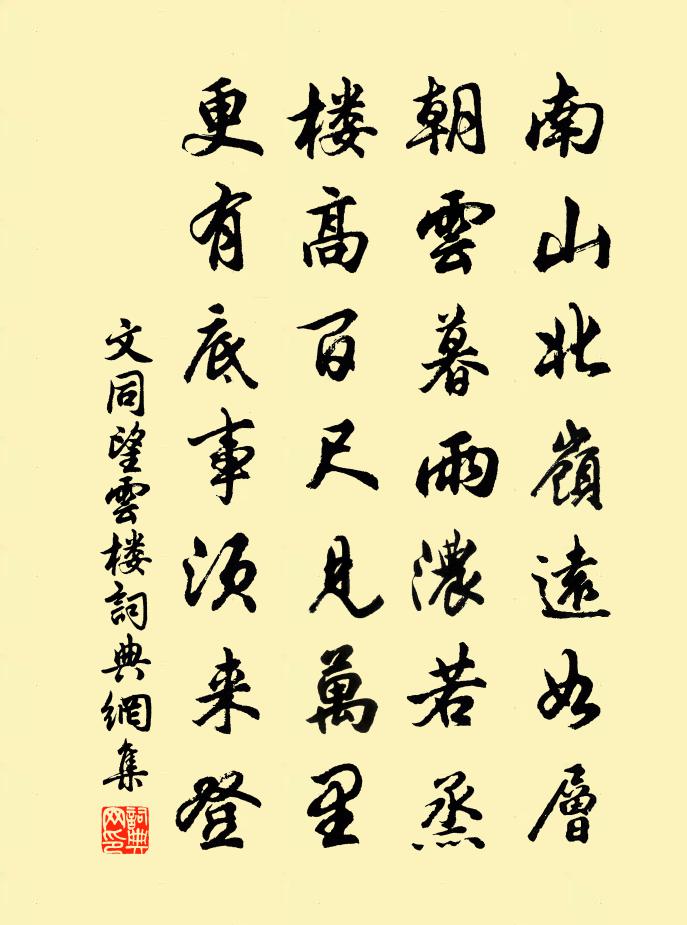 南山北嶺遠如層
朝雲暮雨濃若烝
楼高百尺見萬里
更有底事須来登
文同望雲楼詞典網集
詞典网印